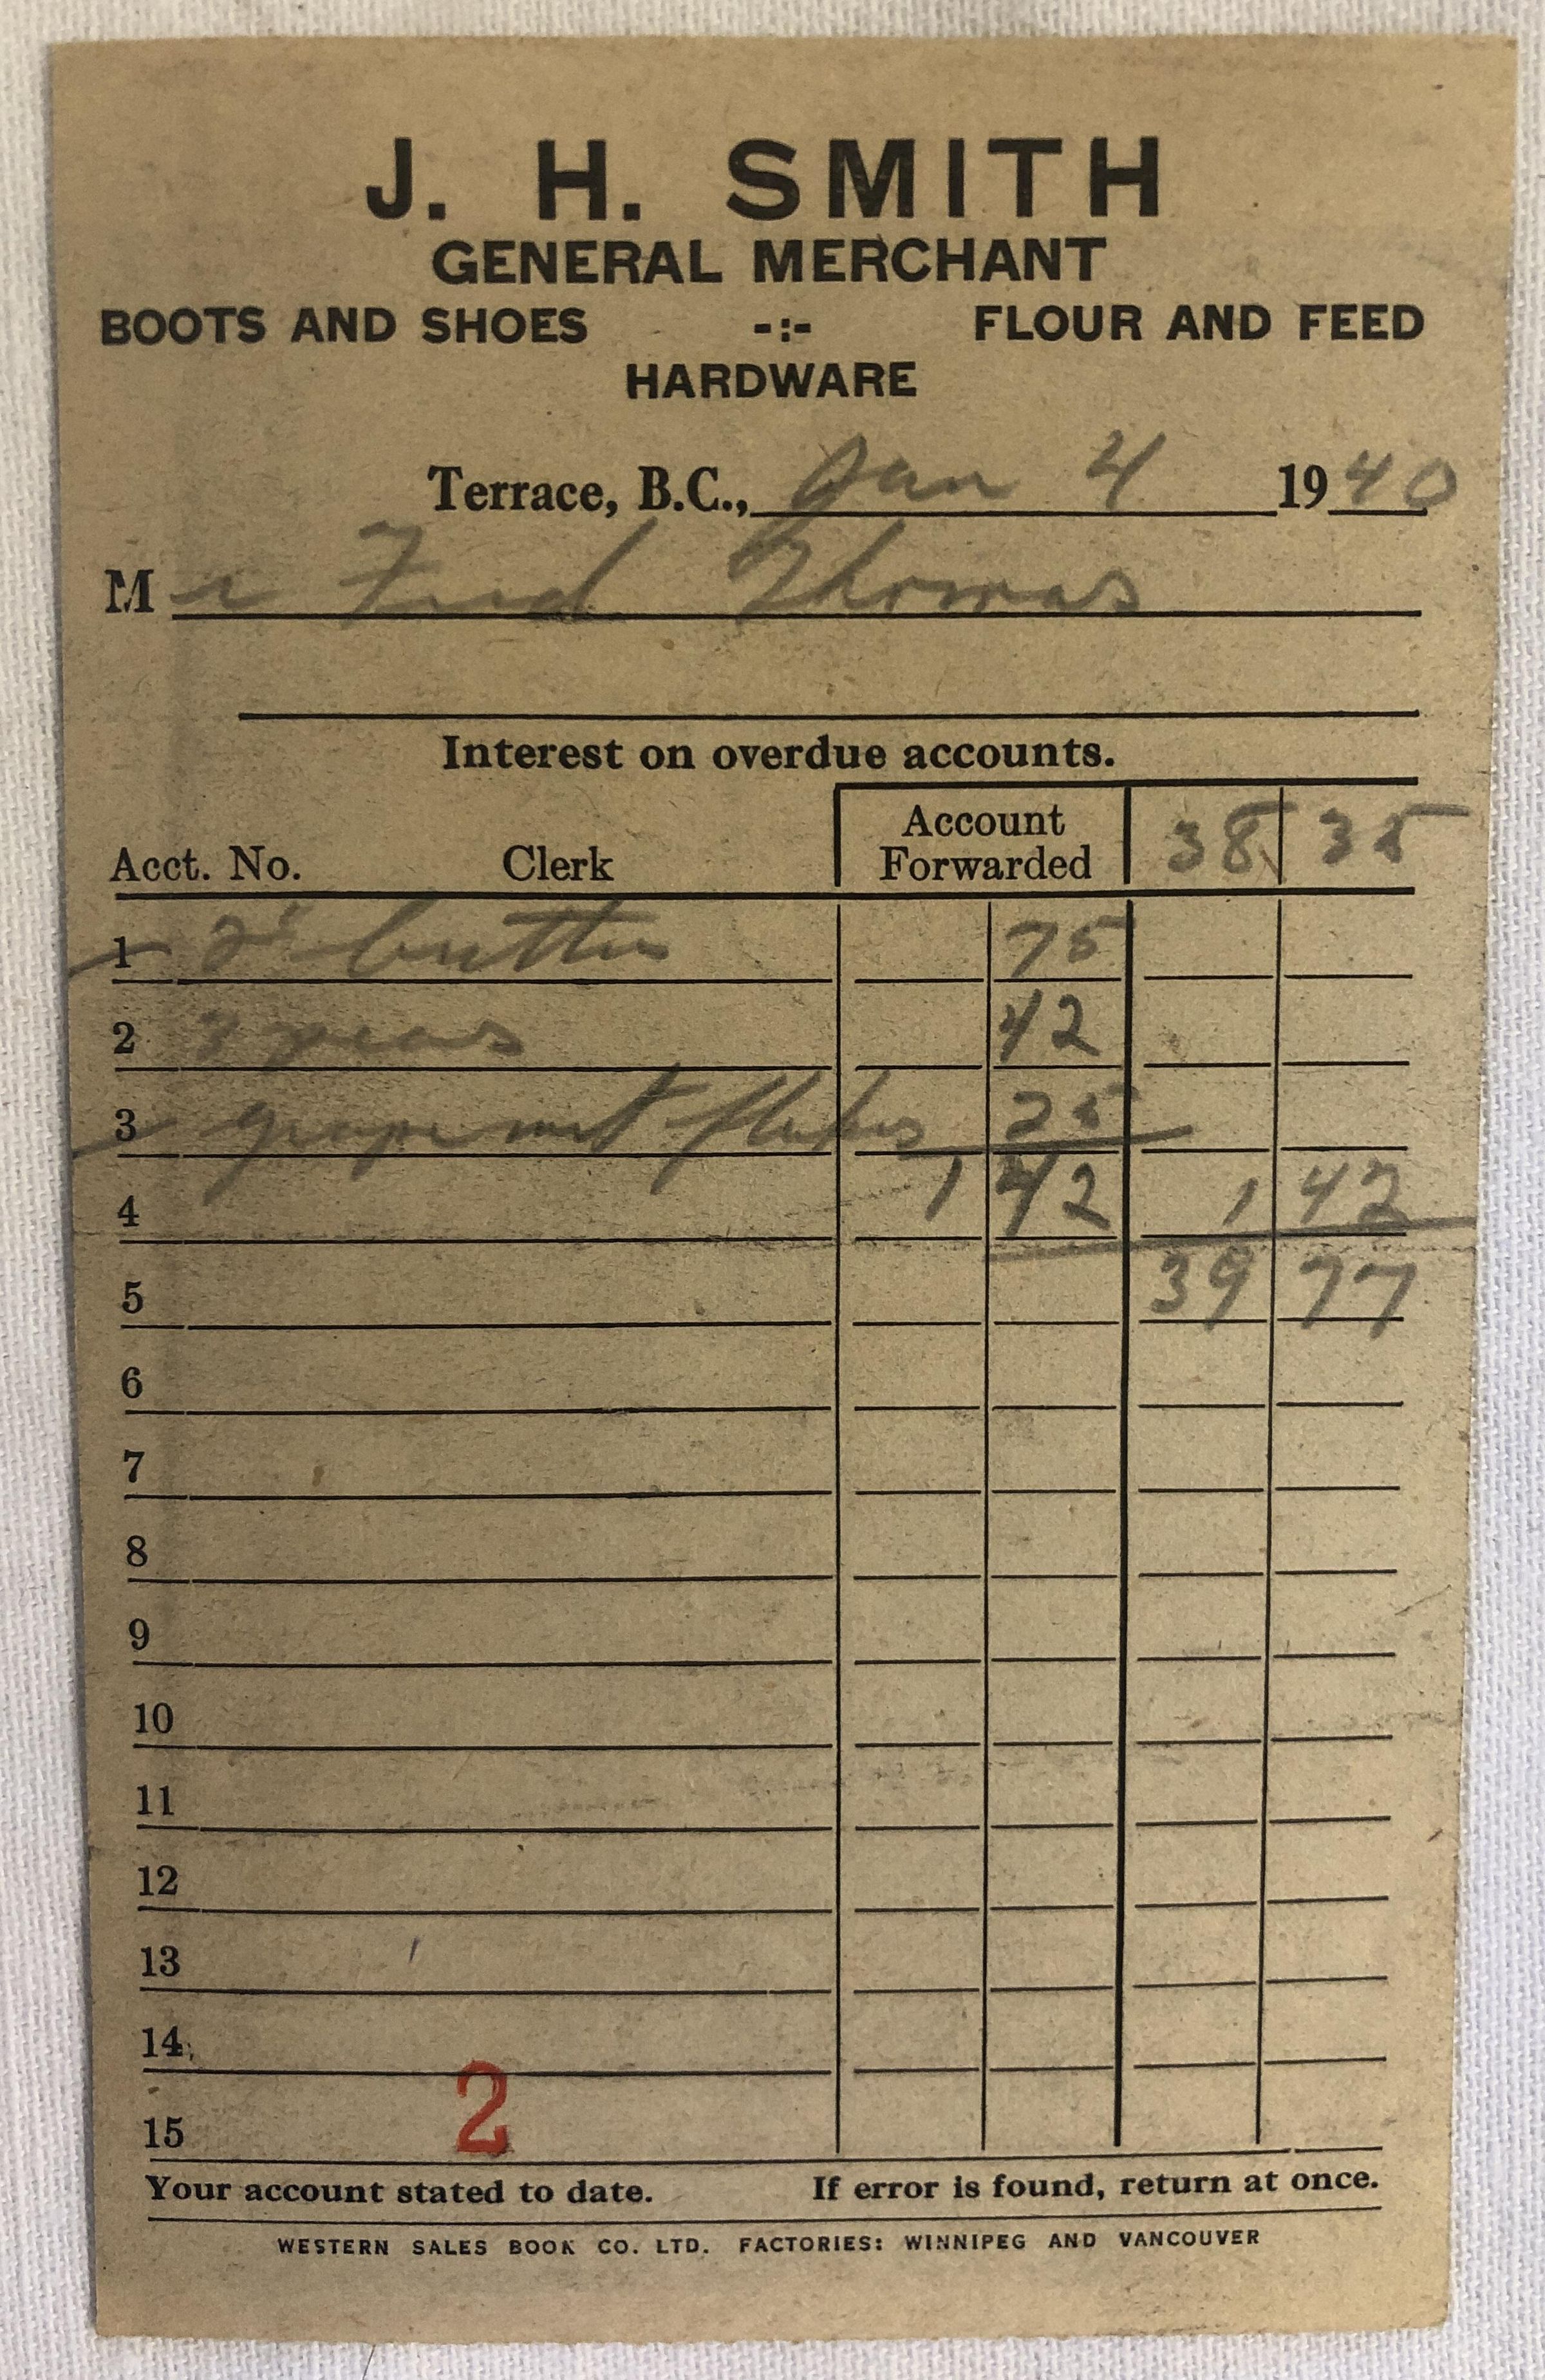 J. H. SMITH
GENERAL MERCHANT
BOOTS AND SHOES -:- FLOUR AND FEED
HARDWARE
Terrace, B.C., Jan 4 1940
Mr Fred Thomas
Interest on overdue accounts.
Acct. No. Clerk Account Forwarded 38 35
1 2# butter 75
2 3 peas 42
3 grapenut flakes 25
4 1 42 1 42
5 39 77
6
7
8
9
10
11
12
13
14
15 2
Your account stated to date. If error is found, return at once.
WESTERN SALES BOOK CO. LTD. FACTORIES: WINNIPEG AND VANCOUVER